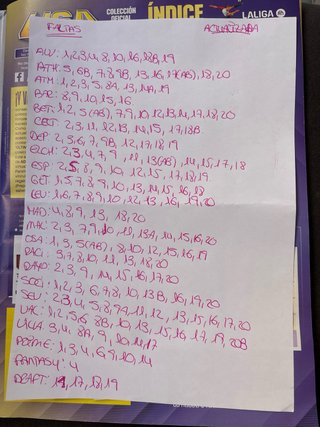 COLECCIÓN
OFICIAL
ÍNDICE
LALIGA
FALTAS
ALV: 1,2,3,4,8,10,16,18B,19
ATH: 5,6B,7,8,9B,13,16,17(AB),18,20
ATM: 1,2,3,5,8A,13,14A,19
BAR: 8,9,10,15,16
BET: 1,2,5(AB),7,9,10,12,13,14,17,18,20
CELT: 2,3,11,12,13,14,15,17,18B
DEP: 2,3,6,7,9B,12,17,18,19
ELCH: 2,3,4,7,9,11,13(AB),14,15,17,18
ESP: 2,5,8,9,10,12,15,17,18,19
GET: 1,5,7,8,9,10,13,14,15,16,18
LEV: 1,6,7,8,9,10,12,13,16,19,20
MAD: 4,8,9,13,18,20
MAL: 2,3,7,9,10,11,13A,14,15,16,20
OSA: 1,3,5(AB),8,10,12,15,16,19
RACI: 3,7,8,10,11,13,18,20
RAYO: 2,3,9,14,15,16,17,20
SOCI: 1,2,3,6,7,8,10,13B,16,19,20
SEV: 2,3,4,5,8,9A,11,12,13,15,16,17,20
VAL: 1,2,5,6,8B,10,13,15,16,17,19,20B
VILLA: 3,4,8A,9,10,14,17
PONME: 1,3,4,6,9,10,14
FANTASY: 4
DRAFT: 11,17,18,19